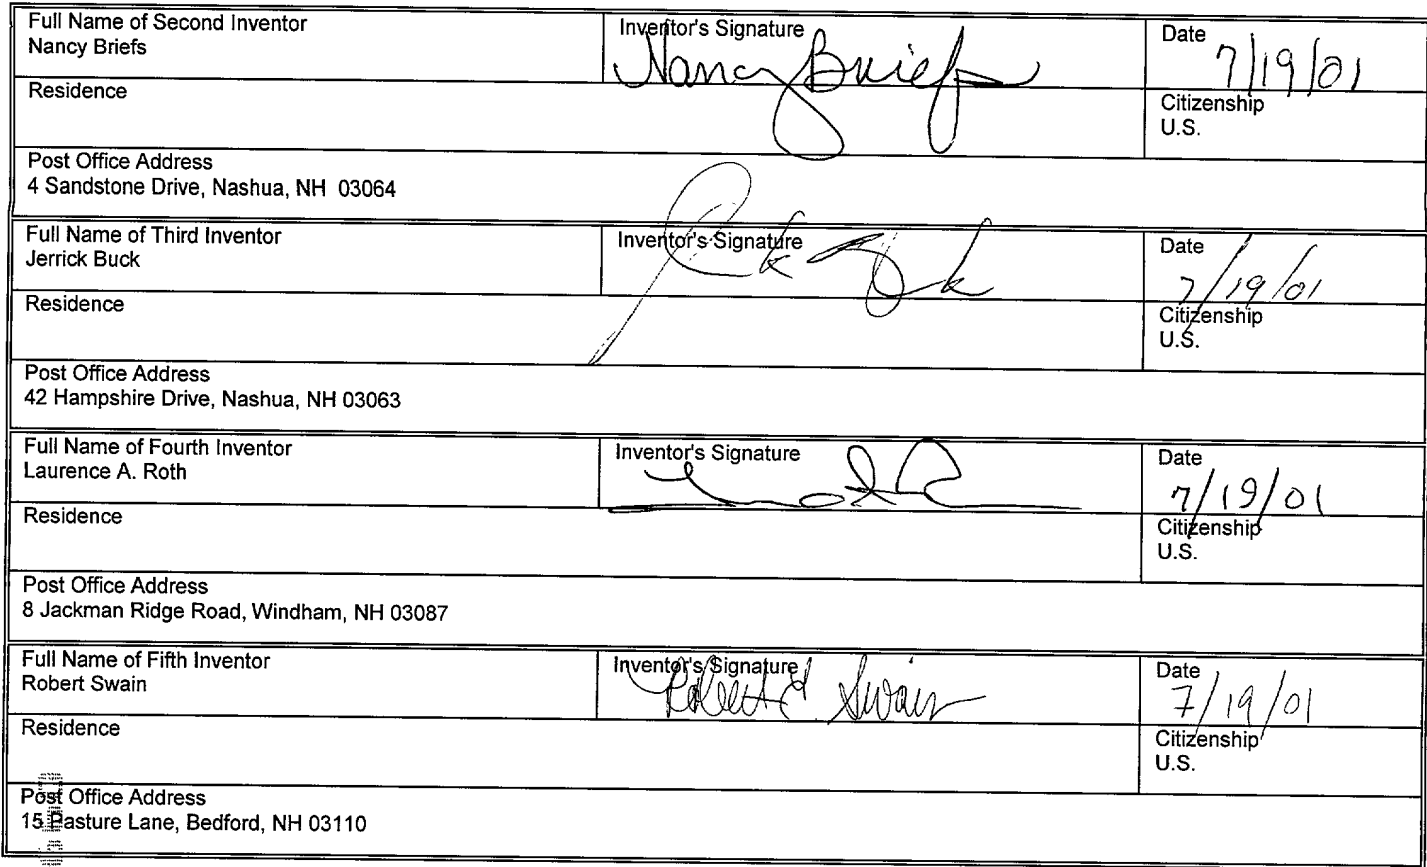 Full Name of Second Inventor
Nancy Briefs
Inventor's Signature
Nancy Briefs
Date
7/19/01
Residence
Citizenship
U.S.
Post Office Address
4 Sandstone Drive, Nashua, NH 03064
Full Name of Third Inventor
Jerrick Buck
Inventor's Signature
Date
7/19/01
Residence
Citizenship
U.S.
Post Office Address
42 Hampshire Drive, Nashua, NH 03063
Full Name of Fourth Inventor
Laurence A. Roth
Inventor's Signature
Date
7/19/01
Residence
Citizenship
U.S.
Post Office Address
8 Jackman Ridge Road, Windham, NH 03087
Full Name of Fifth Inventor
Robert Swain
Inventor's Signature
Robert Swain
Date
7/19/01
Residence
Citizenship
U.S.
Post Office Address
15 Pasture Lane, Bedford, NH 03110